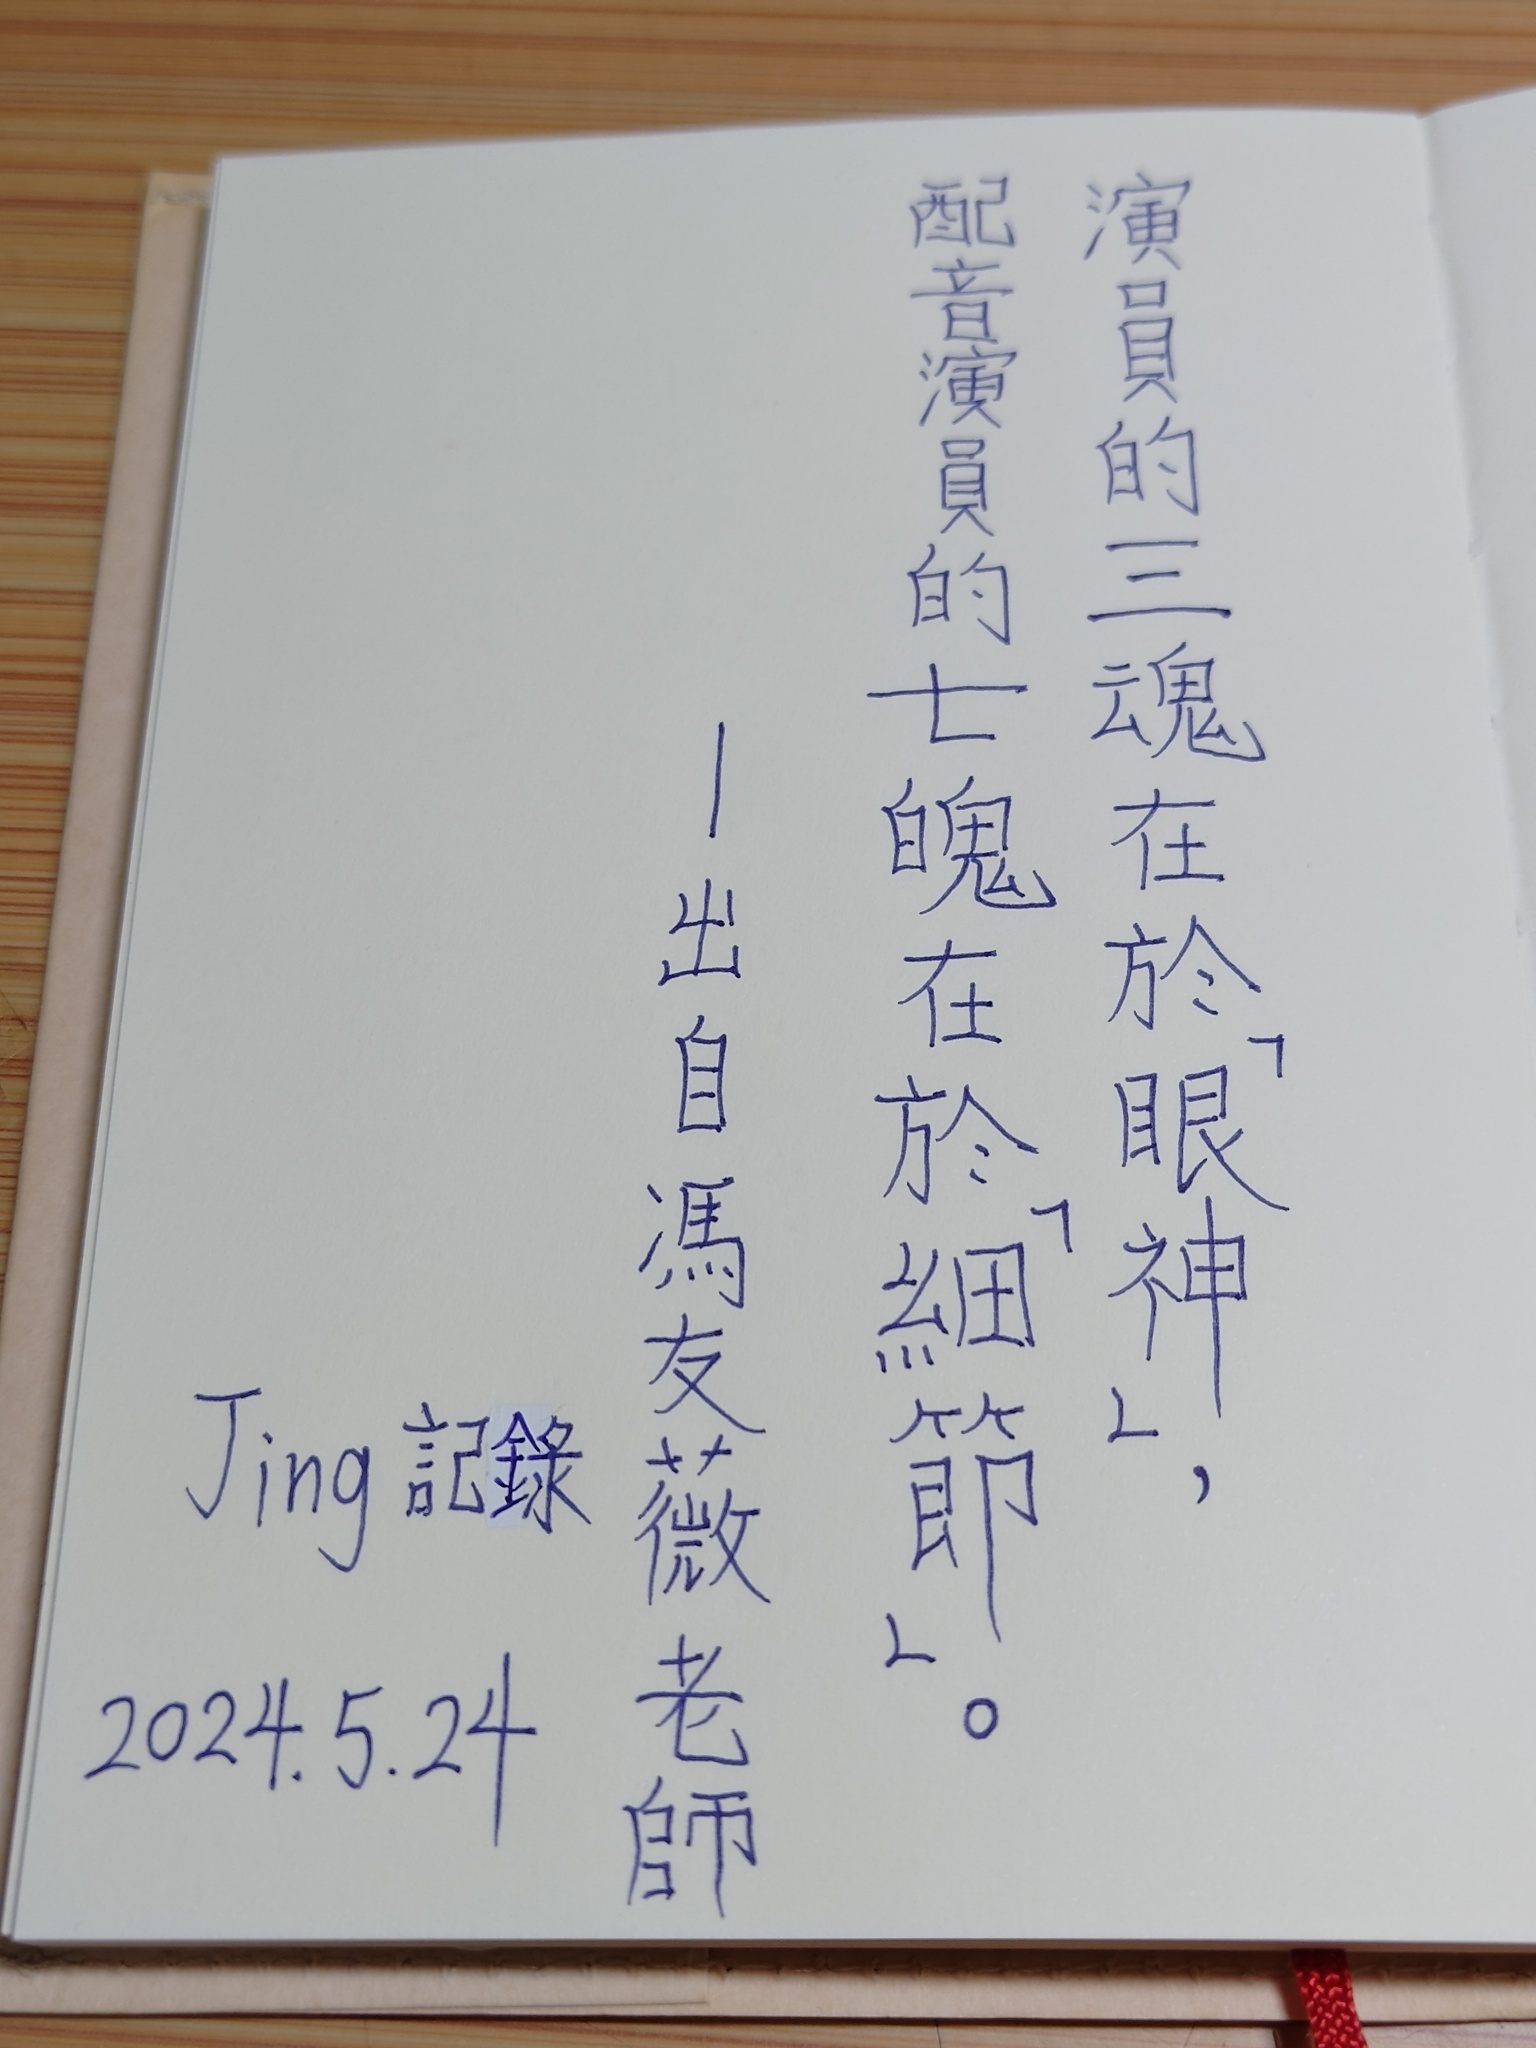 演員的三魂在於「眼神」，
配音演員的七魄在於「細節」。
—出自馮友薇老師
Jing 記錄
2024.5.24